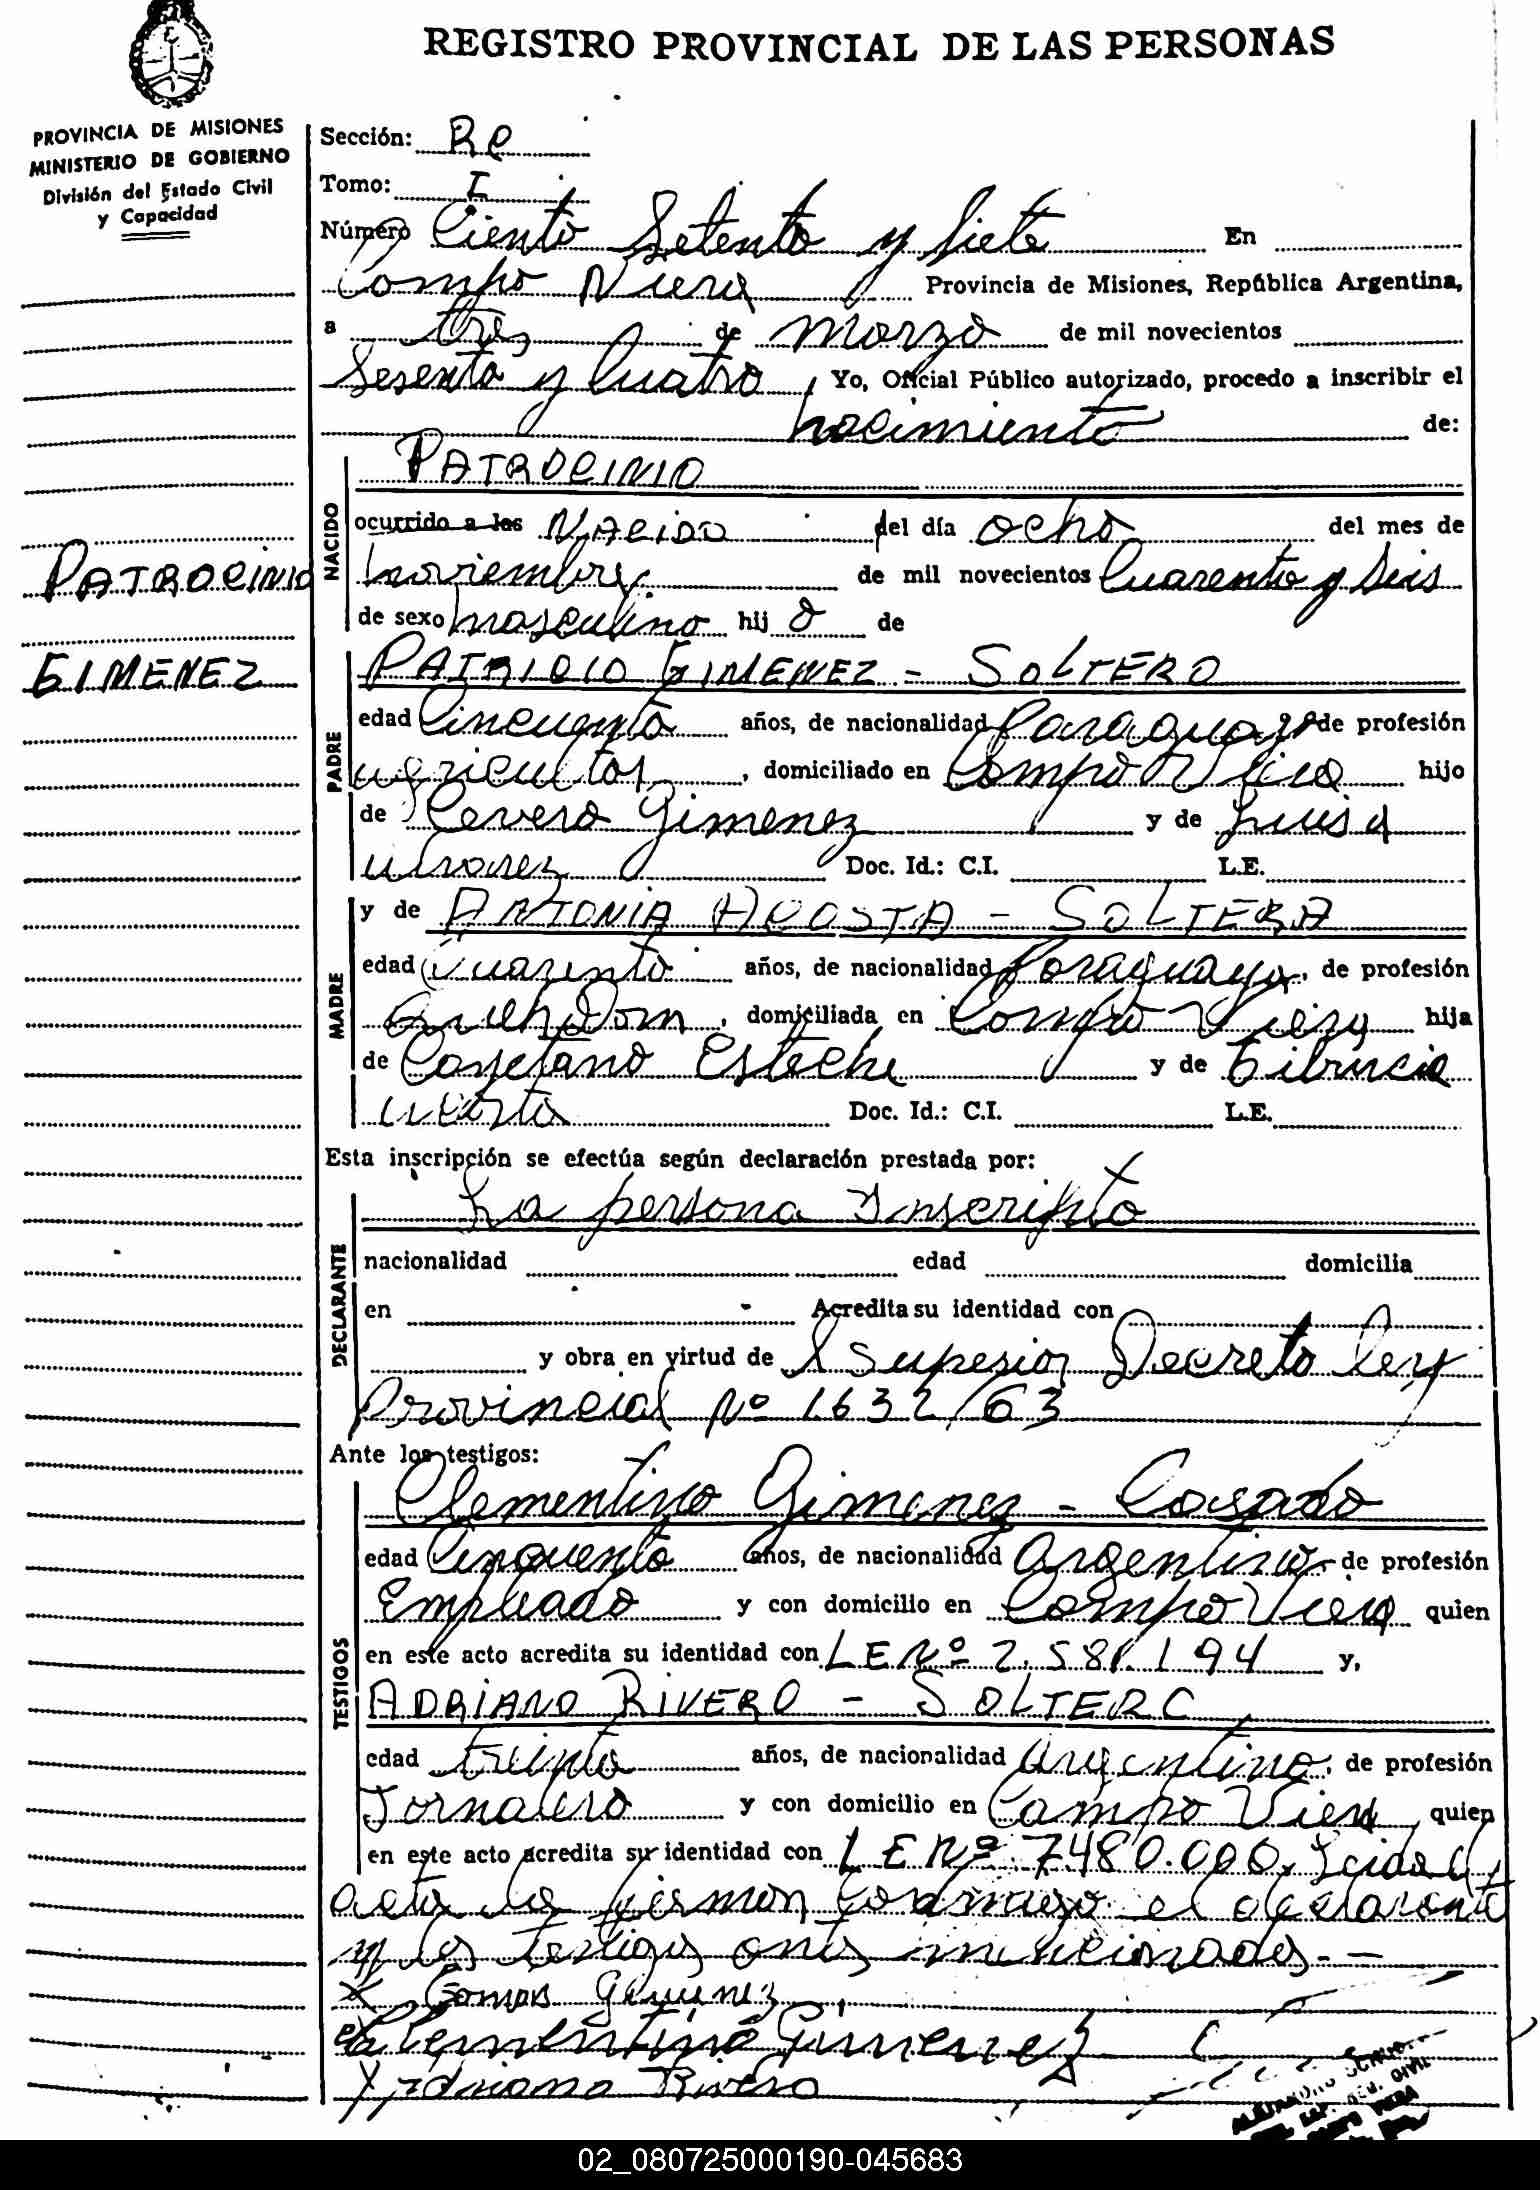 REGISTRO PROVINCIAL DE LAS PERSONAS
PROVINCIA DE MISIONES
MINISTERIO DE GOBIERNO
División del Estado Civil
y Capacidad
Sección: Re
Tomo: I
Número Ciento Setenta y Siete En
Campo Viera Provincia de Misiones, República Argentina,
a tres de marzo de mil novecientos
Sesenta y Cuatro, Yo, Oficial Público autorizado, procedo a inscribir el
nacimiento de:
PATROCINIO
NACIDO
ocurrido a las NACIDO del día ocho del mes de
noviembre de mil novecientos Cuarenta y Seis
de sexo masculino hij o de
PATROCINIO
GIMENEZ
PATRICIO GIMENEZ - SOLTERO
PADRE
edad Cincuenta años, de nacionalidad Paraguayo de profesión
agricultor, domiciliado en Campo Viera hijo
de Cevero Gimenez y de Luisa
Alvarez Doc. Id.: C.I. L.E.
y de ANTONIA ACOSTA - SOLTERA
MADRE
edad Cuarenta años, de nacionalidad Paraguaya, de profesión
Dom, domiciliada en Campo Viera hija
de Cayetano Esteche y de Tiburcia
Acosta Doc. Id.: C.I. L.E.
Esta inscripción se efectúa según declaración prestada por:
La persona Inscripto
DECLARANTE
nacionalidad edad domicilia
en Acredita su identidad con
y obra en virtud de Superior Decreto Ley
Provincial Nº 1632/63
Ante los testigos:
Clementino Gimenez - Casado
TESTIGOS
edad Cinquenta años, de nacionalidad Argentino, de profesión
Empleado y con domicilio en Campo Viera quien
en este acto acredita su identidad con LE Nº 2.581.194 y,
ADRIANO RIVERO - SOLTERO
edad treinta años, de nacionalidad Argentino, de profesión
Jornalero y con domicilio en Campo Viera, quien
en este acto acredita su identidad con LE Nº 7480.006, Leida el
acta la firman conmigo el declarante
y los testigos antes mencionados.-
X Gimenez
Clementino Gimenez
X Adriano Rivero
02_080725000190-045683